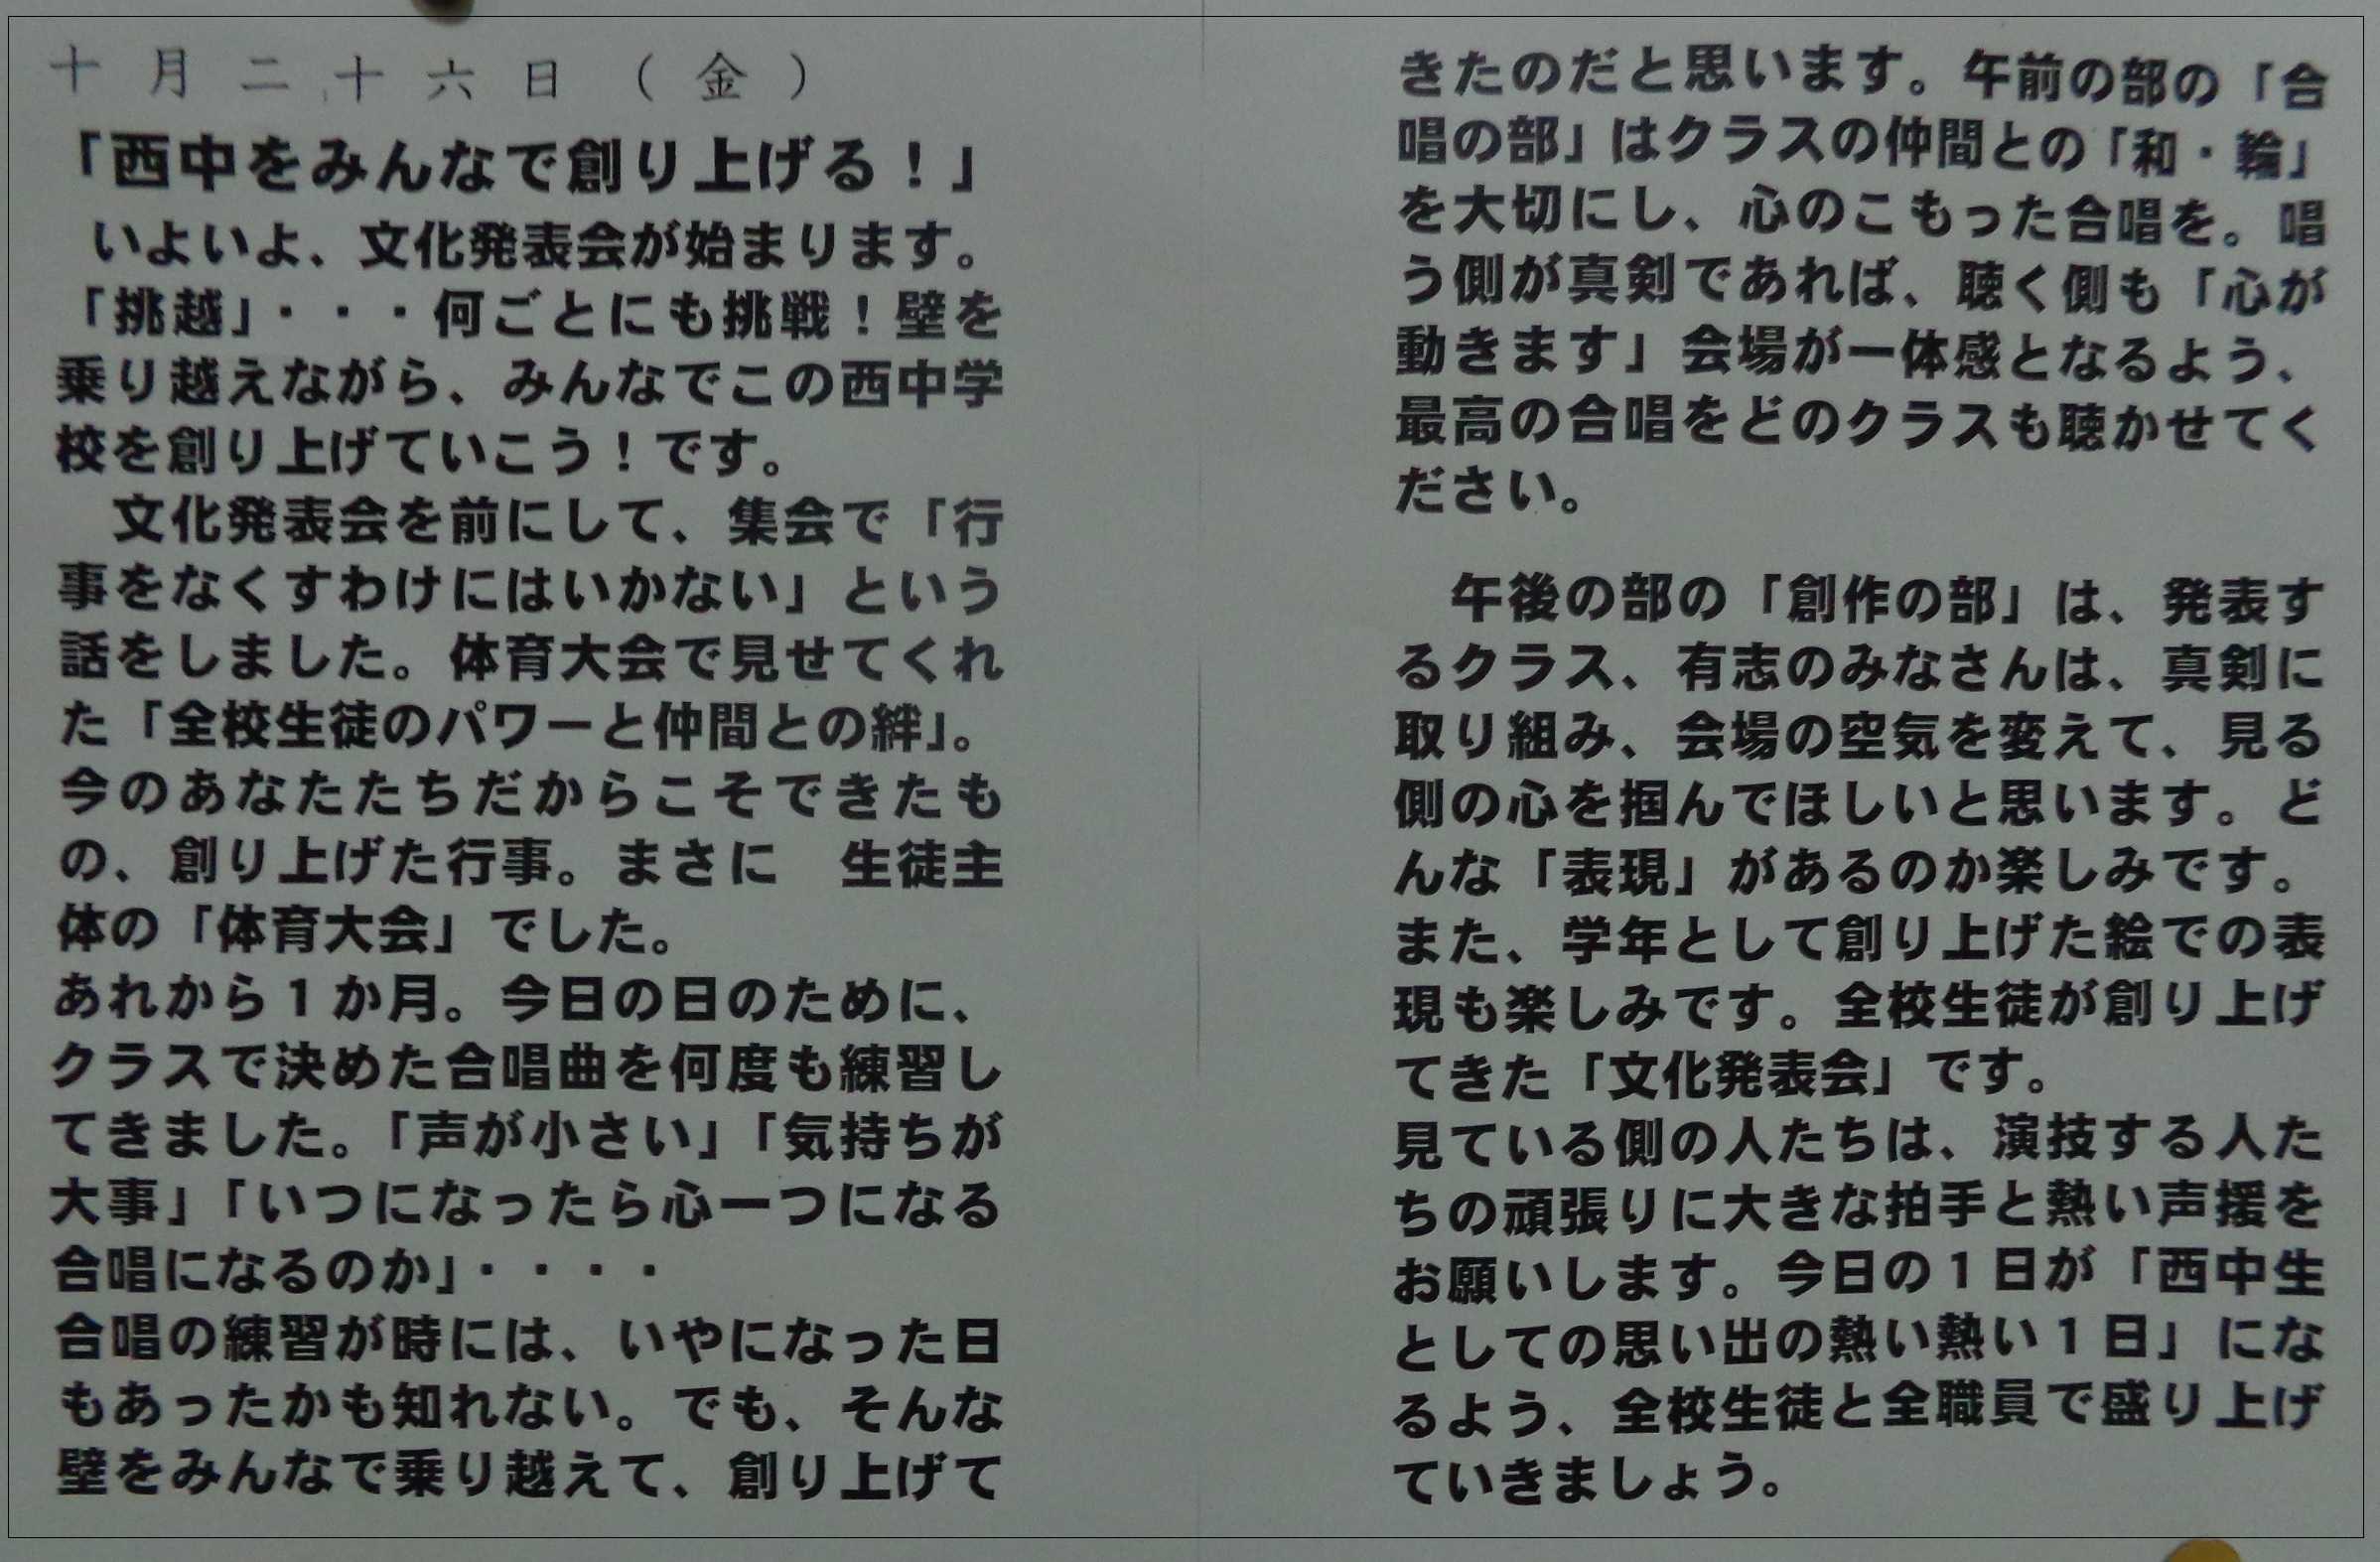 十月二十六日（金）
「西中をみんなで創り上げる！」
いよいよ、文化発表会が始まります。
「挑越」・・・何ごとにも挑戦！壁を
乗り越えながら、みんなでこの西中学
校を創り上げていこう！です。
文化発表会を前にして、集会で「行
事をなくすわけにはいかない」という
話をしました。体育大会で見せてくれ
た「全校生徒のパワーと仲間との絆」。
今のあなたたちだからこそできたも
の、創り上げた行事。まさに　生徒主
体の「体育大会」でした。
あれから１か月。今日の日のために、
クラスで決めた合唱曲を何度も練習し
てきました。「声が小さい」「気持ちが
大事」「いつになったら心一つになる
合唱になるのか」・・・・
合唱の練習が時には、いやになった日
もあったかも知れない。でも、そんな
壁をみんなで乗り越えて、創り上げて
きたのだと思います。午前の部の「合
唱の部」はクラスの仲間との「和・輪」
を大切にし、心のこもった合唱を。唱
う側が真剣であれば、聴く側も「心が
動きます」会場が一体感となるよう、
最高の合唱をどのクラスも聴かせてく
ださい。
午後の部の「創作の部」は、発表す
るクラス、有志のみなさんは、真剣に
取り組み、会場の空気を変えて、見る
側の心を掴んでほしいと思います。ど
んな「表現」があるのか楽しみです。
また、学年として創り上げた絵での表
現も楽しみです。全校生徒が創り上げ
てきた「文化発表会」です。
見ている側の人たちは、演技する人た
ちの頑張りに大きな拍手と熱い声援を
お願いします。今日の１日が「西中生
としての思い出の熱い熱い１日」にな
るよう、全校生徒と全職員で盛り上げ
ていきましょう。